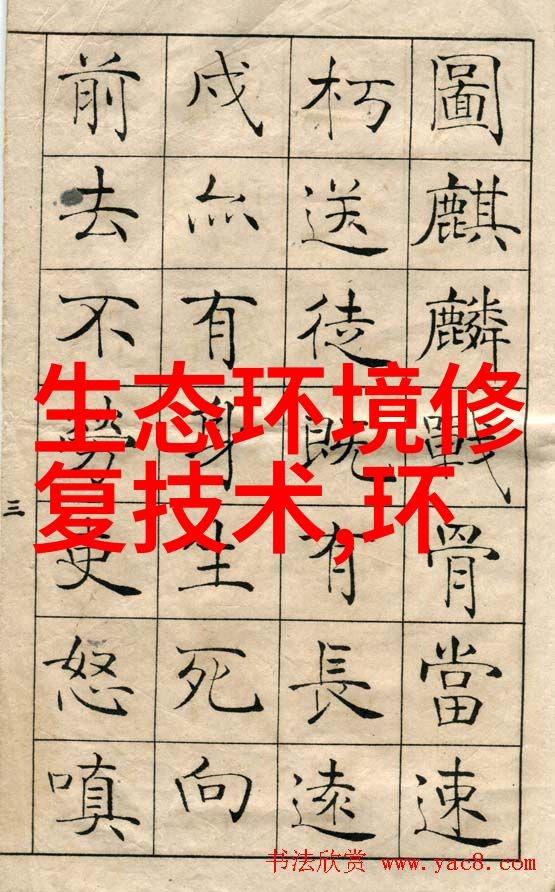 圖麒麟戰骨當速
朽送徒既有長遠
戍亦有身生死向
前去不勞吏怒嗔
三
生态环境修
复技术,环
书法欣赏 www.yac8.com